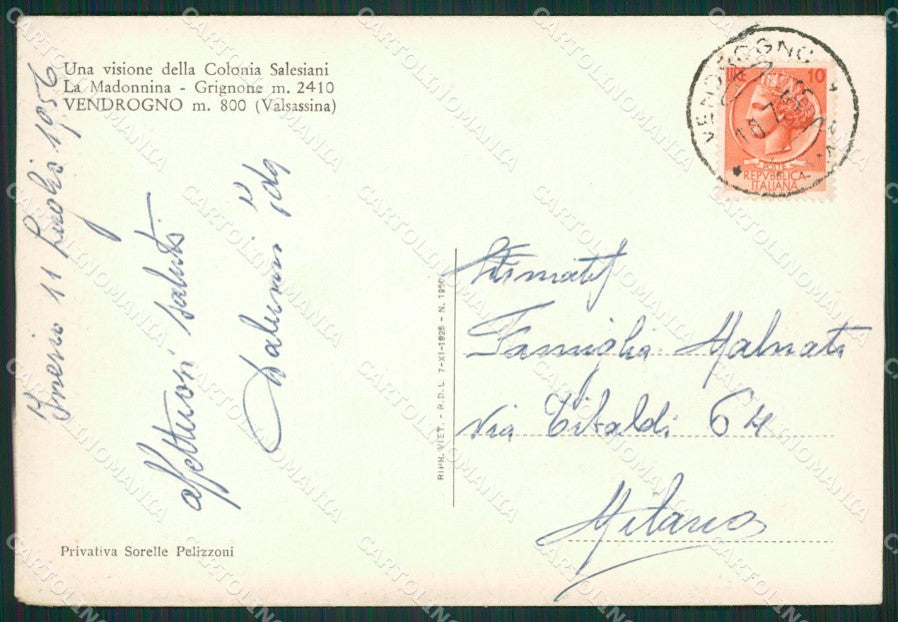 Una visione della Colonia Salesiani
La Madonnina - Grignone m. 2410
VENDROGNO m. 800 (Valsassina)
11 Luglio 1956
affettuosi saluti
Ida
LIRE 10
REPVBBLICA
ITALIANA
VENDROGNO
RIPR. VIET. - R.D.L. 7-XI-1925 - N. 1950
Famiglia Malnati
Via Tibaldi 64
Milano
Privativa Sorelle Pelizzoni
CARTOLINOMANIA